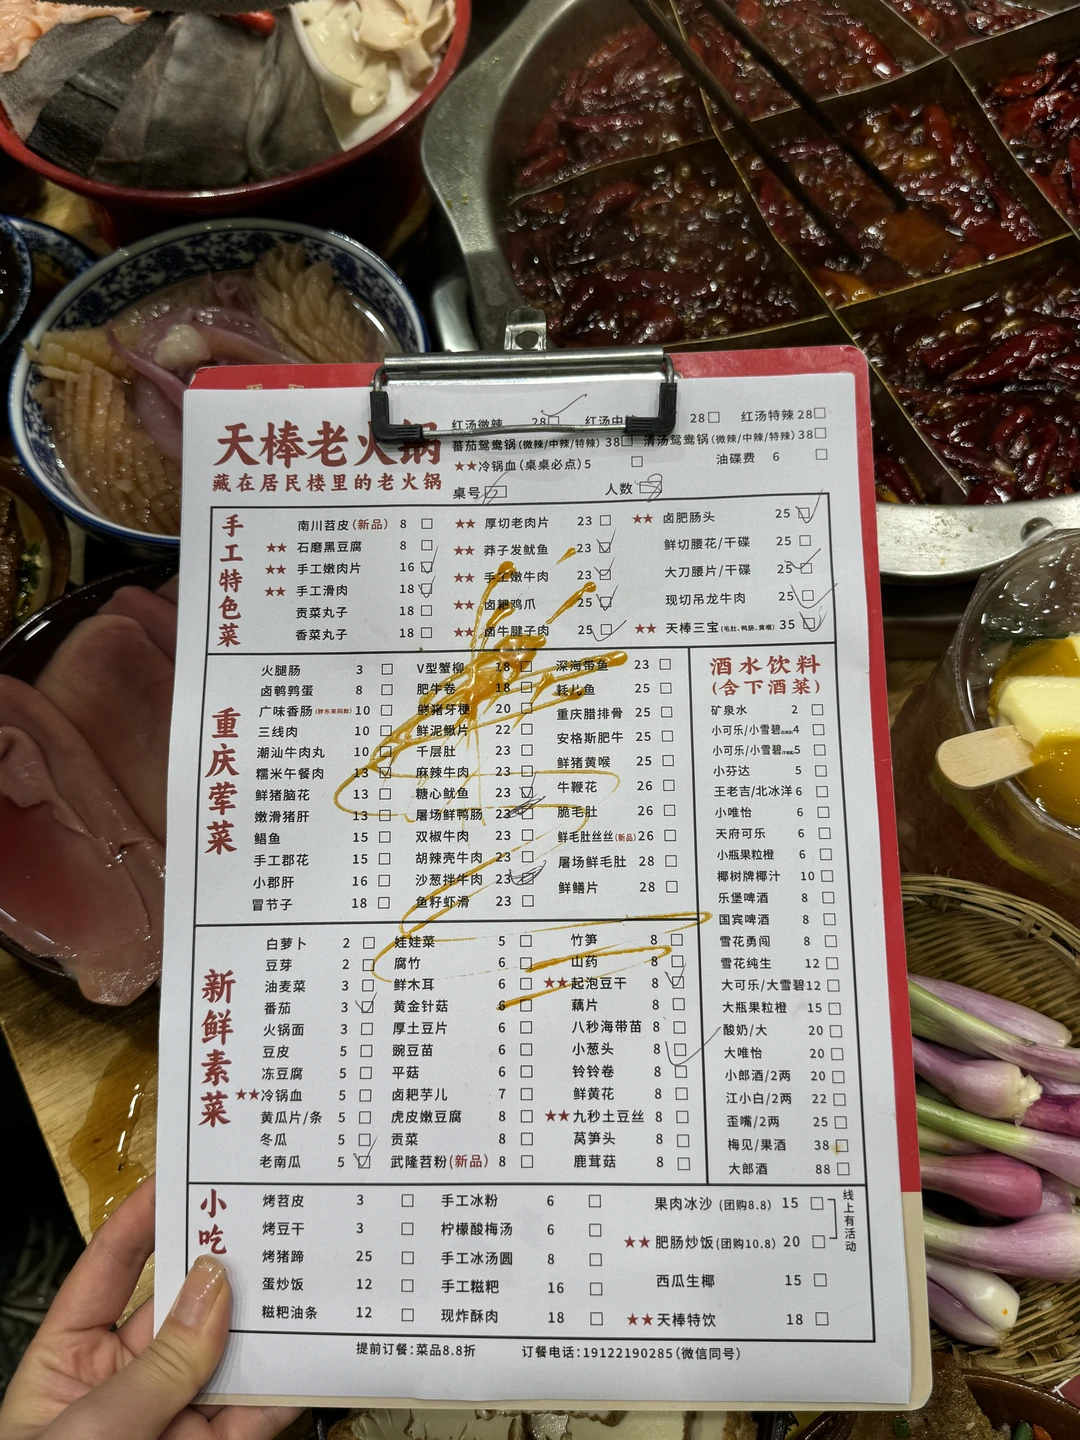 天棒老火锅
藏在居民楼里的老火锅
红汤微辣 28 红汤中 28 红汤特辣 28
番茄鸳鸯锅(微辣/中辣/特辣) 38 清汤鸳鸯锅(微辣/中辣/特辣) 38
★★冷锅血(桌桌必点) 5 油碟费 6
桌号 人数
手工特色菜
南川苕皮(新品) 8 ★★ 厚切老肉片 23 ★★ 卤肥肠头 25
★★ 石磨黑豆腐 8 ★★ 莽子发鱿鱼 23 鲜切腰花/干碟 25
★★ 手工嫩肉片 16 ★★ 手工嫩牛肉 23 大刀腰片/干碟 25
★★ 手工滑肉 18 ★★ 卤耙鸡爪 23 现切吊龙牛肉 25
贡菜丸子 18 ★★ 卤牛腱子肉 25 ★★ 天棒三宝(毛肚、鸭肠、黄喉) 35
香菜丸子 18
重庆荤菜
火腿肠 3 V型蟹柳 18 深海带鱼 23
卤鹌鹑蛋 8 肥牛卷 18 耗儿鱼 25
广味香肠(胖东来同款) 10 鲜猪牙梗 20 重庆腊排骨 25
三线肉 10 鲜泥鳅片 22 安格斯肥牛 25
潮汕牛肉丸 10 千层肚 23 鲜猪黄喉 25
糯米午餐肉 13 麻辣牛肉 23 牛鞭花 26
鲜猪脑花 13 糖心鱿鱼 23 脆毛肚 26
嫩滑猪肝 13 屠场鲜鸭肠 23 鲜毛肚丝丝(新品) 26
鲳鱼 15 双椒牛肉 23 屠场鲜毛肚 28
手工郡花 15 胡辣壳牛肉 23 鲜鳝片 28
小郡肝 16 沙葱拌牛肉 23
冒节子 18 鱼籽虾滑 23
酒水饮料
(含下酒菜)
矿泉水 2
小可乐/小雪碧 4
小可乐/小雪碧 5
小芬达 5
王老吉/北冰洋 6
小唯怡 6
天府可乐 6
小瓶果粒橙 6
椰树牌椰汁 10
乐堡啤酒 8
国宾啤酒 8
雪花勇闯 8
雪花纯生 12
大可乐/大雪碧 12
大瓶果粒橙 15
酸奶/大 20
大唯怡 20
小郎酒/2两 20
江小白/2两 22
歪嘴/2两 25
梅见/果酒 38
大郎酒 88
新鲜素菜
白萝卜 2 娃娃菜 5 竹笋 8
豆芽 2 腐竹 6 山药 8
油麦菜 3 鲜木耳 6 ★★起泡豆干 8
番茄 3 黄金针菇 6 藕片 8
火锅面 3 厚土豆片 6 八秒海带苗 8
豆皮 5 豌豆苗 6 小葱头 8
冻豆腐 5 平菇 6 铃铃卷 8
★★冷锅血 5 卤耙芋儿 7 鲜黄花 8
黄瓜片/条 5 虎皮嫩豆腐 8 ★★九秒土豆丝 8
冬瓜 5 贡菜 8 莴笋头 8
老南瓜 5 武隆苕粉(新品) 8 鹿茸菇 8
小吃
烤苕皮 3 手工冰粉 6 果肉冰沙 (团购8.8) 15
烤豆干 3 柠檬酸梅汤 6 ★★ 肥肠炒饭(团购10.8) 20
烤猪蹄 25 手工冰汤圆 8 西瓜生椰 15
蛋炒饭 12 手工糍粑 16 ★★天棒特饮 18
糍粑油条 12 现炸酥肉 18
线上有活动
提前订餐:菜品8.8折 订餐电话:19122190285(微信同号)